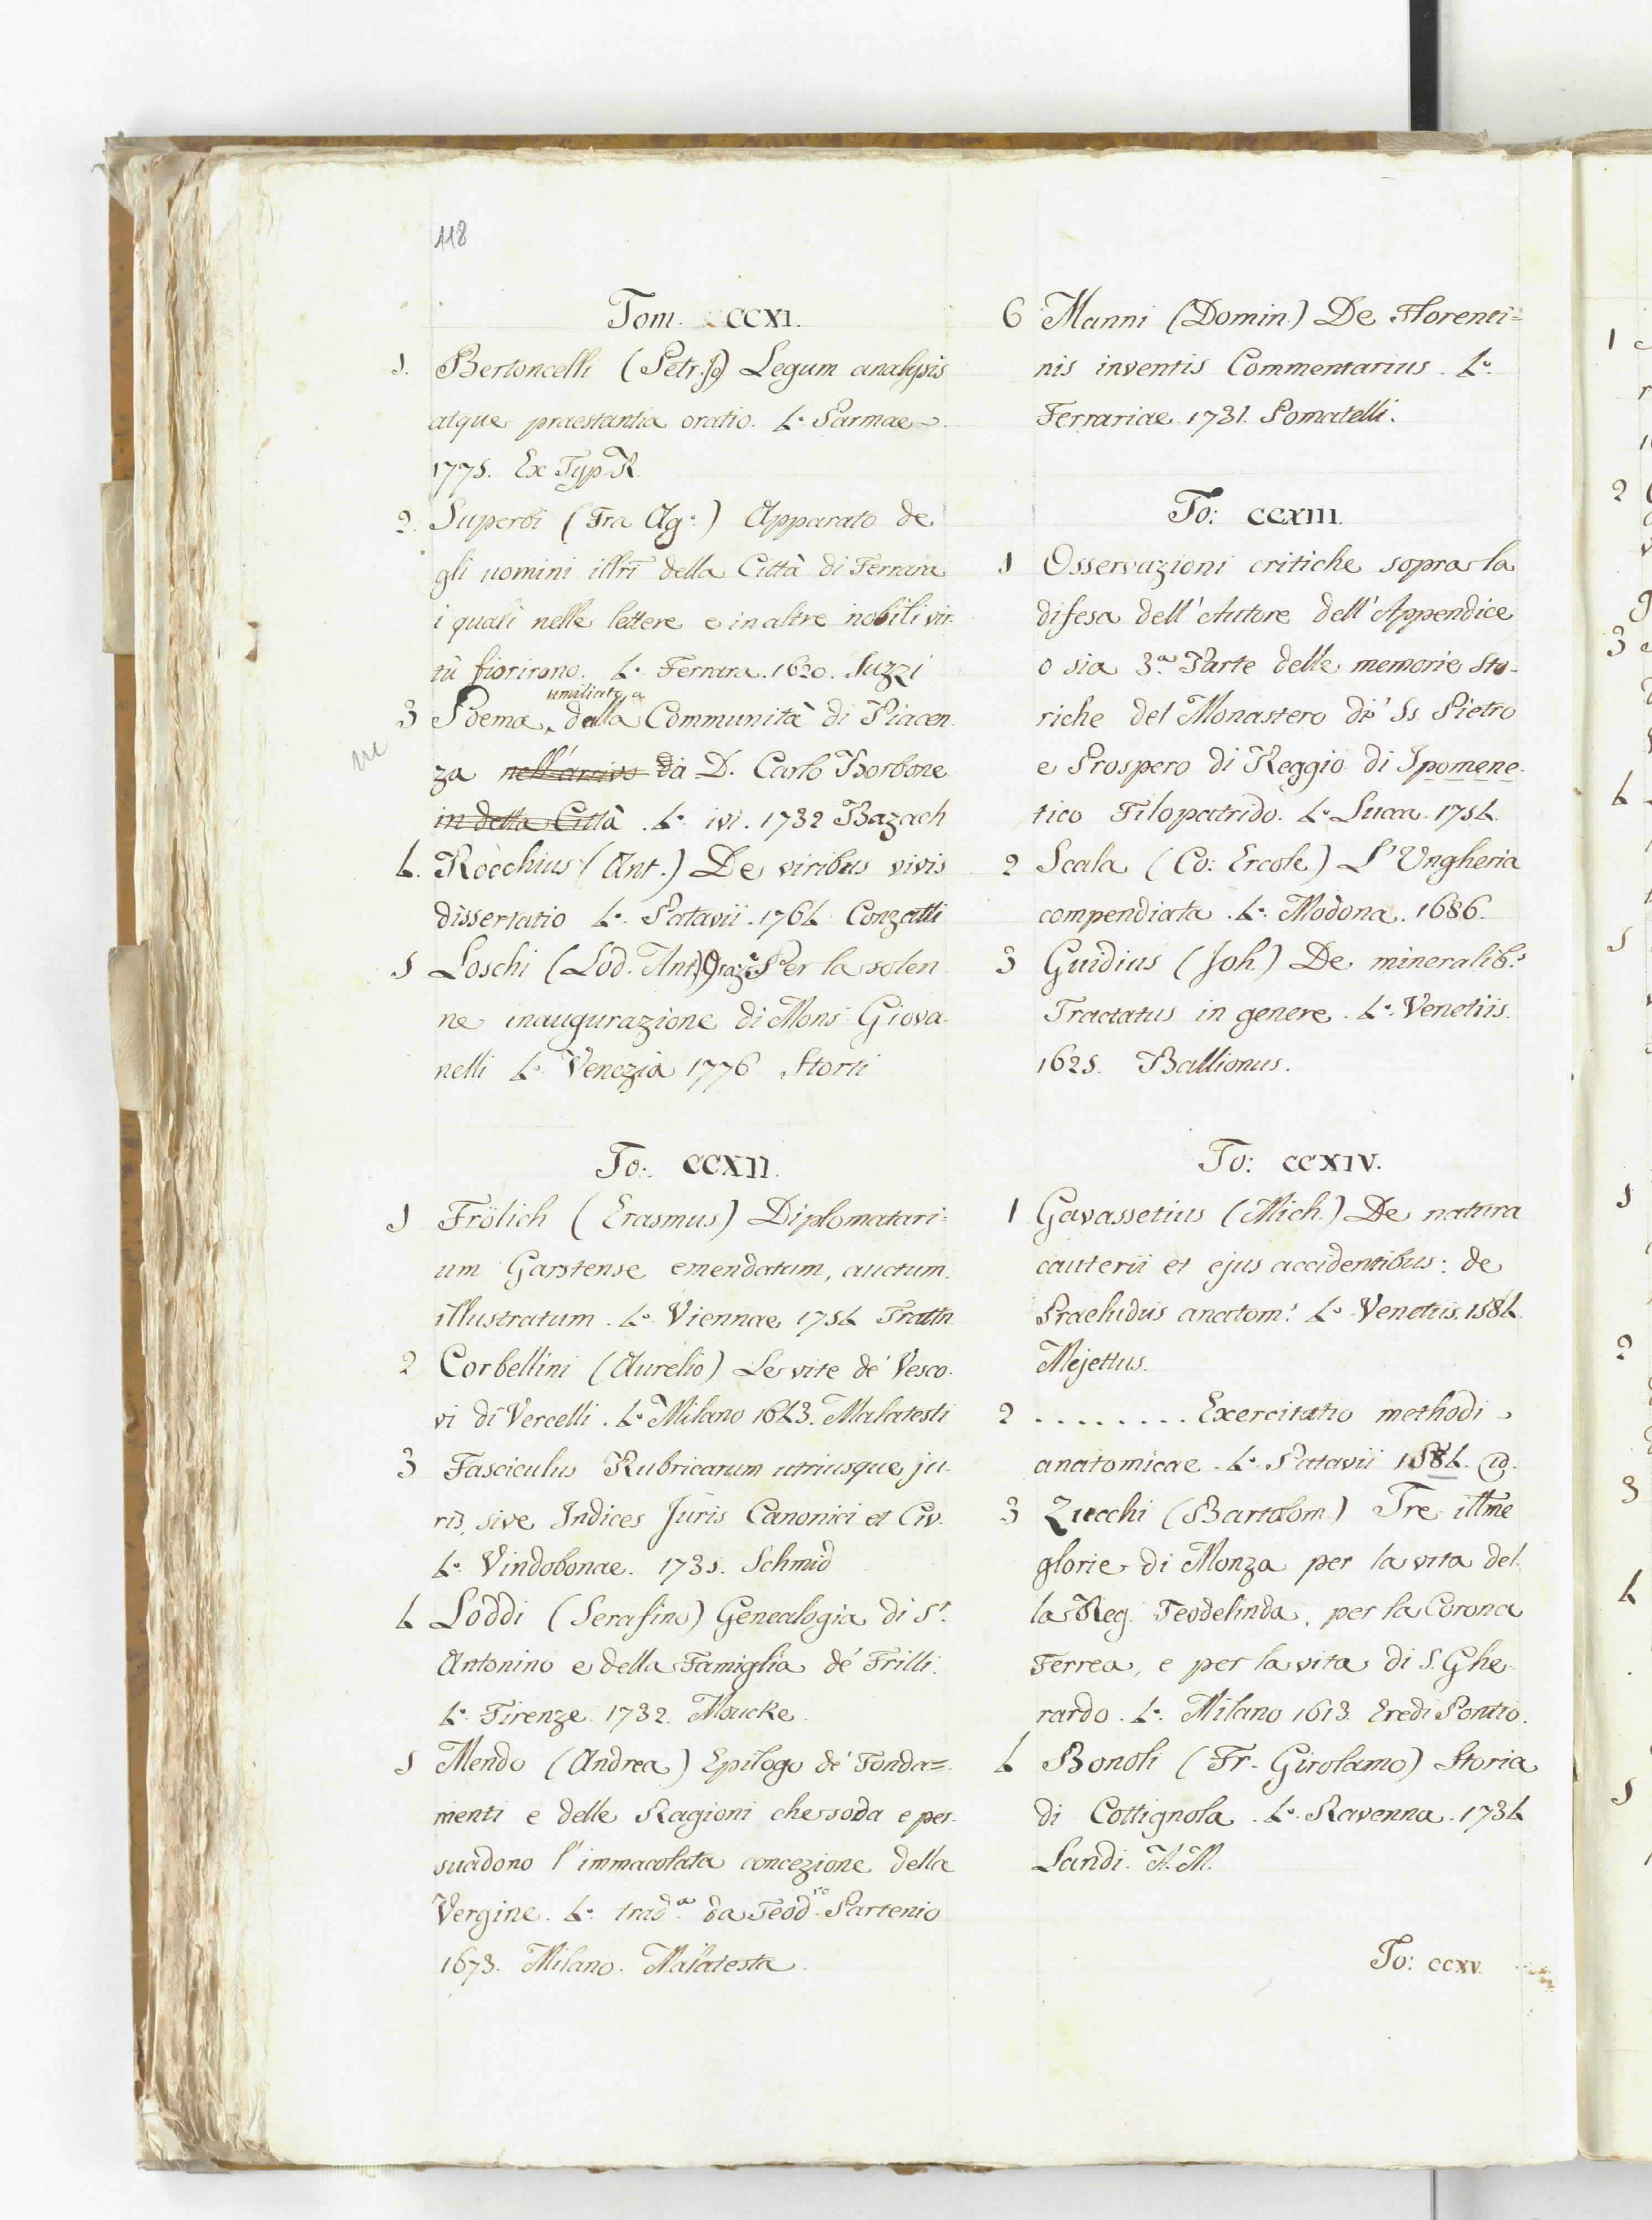 118
Tom. CCXI.
1. Bertoncelli (Petr. Jo) Legum analysis
atque praestantia oratio. 4.o Parmae
1775. Ex Typ R.
2. Superbi (Fra Ag.o) Apparato de
gli uomini illri della Città di Ferrara
i quali nelle lettere e in altre nobili vir-
tù fiorirono. 4.o Ferrara. 1620. Suzzi
umiliato a
3 Poema, della Communità di Piacen
za nell'arrivo da D. Carlo Borbone
in detta Città. 4.o ivi. 1732 Bazach
4. Rocchius (Ant.) De viribus vivis
dissertatio 4.o Patavii. 1764 Conzatti
5 Loschi (Lod. Ant.) Oraz.e Per la solen
ne inaugurazione di Mons. Giova-
nelli 4.o Venezia 1776 Storti
To: CCXII.
1 Frölich (Erasmus) Diplomatari=
um Garstense emendatum, auctum.
illustratum. 4.o Viennae 1754 Trattn
2 Corbellini (Aurelio) Le vite de' Vesco-
vi di Vercelli. 4.o Milano 1643. Malatesti
3 Fasciculus Rubricarum utriusque ju-
ris, sive Indices Juris Canonici et Civ.
4.o Vindobonae. 1735. Schmid
4 Loddi (Serafino) Genealogia di S.t
Antonino e della Famiglia de' Frilli.
4.o Firenze 1732. Moucke.
5 Mendo (Andrea) Epilogo de' Fonda=
menti e delle Ragioni che soda e per-
suadono l'immacolata concezione della
Vergine. 4.o trad.a da Teod.ro Partenio
1673. Milano. Malatesta.
6 Manni (Domin.) De Florenti=
nis inventis Commentarius. 4.o
Ferrariae 1731. Pomatelli.
To: CCXIII.
1 Osservazioni critiche sopra la
difesa dell'Autore dell'Appendice
o sia 3.a Parte delle memorie Sto-
riche del Monastero di' Ss. Pietro
e Prospero di Reggio di Ipomene-
tico Filopatrido. 4.o Lucca. 1754.
2 Scala (Co: Ercole) L'Ungheria
compendiata. 4.o Modona. 1686.
3 Guidius (Joh.) De mineralib.s
Tractatus in genere. 4.o Venetiis.
1625. Ballionus.
To: CCXIV.
1 Gavassetius (Mich.) De natura
cauterii et ejus accidentibus: de
Praeludiis anatom.s 4.o Venetiis. 1584.
Mejettus.
2 ........ Exercitatio methodi
anatomicae. 4.o Patavii 1584. id.
3 Zucchi (Bartolom.) Tre illme
glorie di Monza per la vita del-
la Reg. Teodelinda, per la Corona
Ferrea, e per la vita di S. Ghe-
rardo. 4.o Milano 1613. Eredi Pontio.
4 Bonoli (Fr. Girolamo) Storia
di Cottignola. 4.o Ravenna. 1734
Landi. A. M.
To: CCXV.